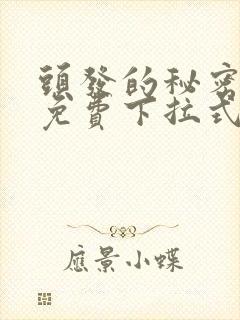 頭發的秘密
免費下拉式
應景小蝶